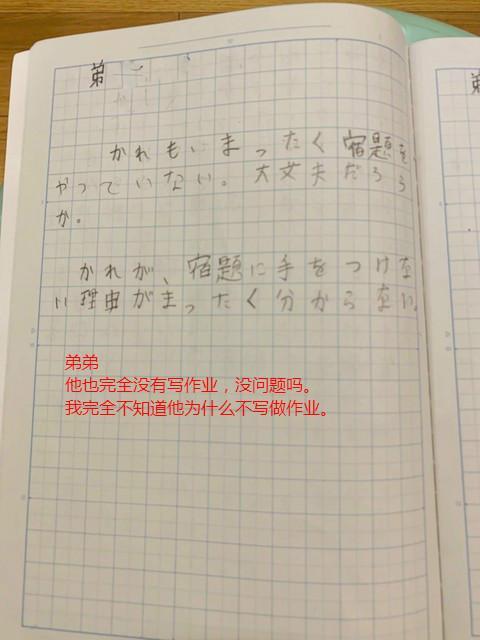 弟
かれも、まったく宿題を、
やっていない。大丈夫だろう
か。
かれが、宿題に手をつけな
い理由がまったく分からない。
弟弟
他也完全没有写作业，没问题吗。
我完全不知道他为什么不写做作业。
弟